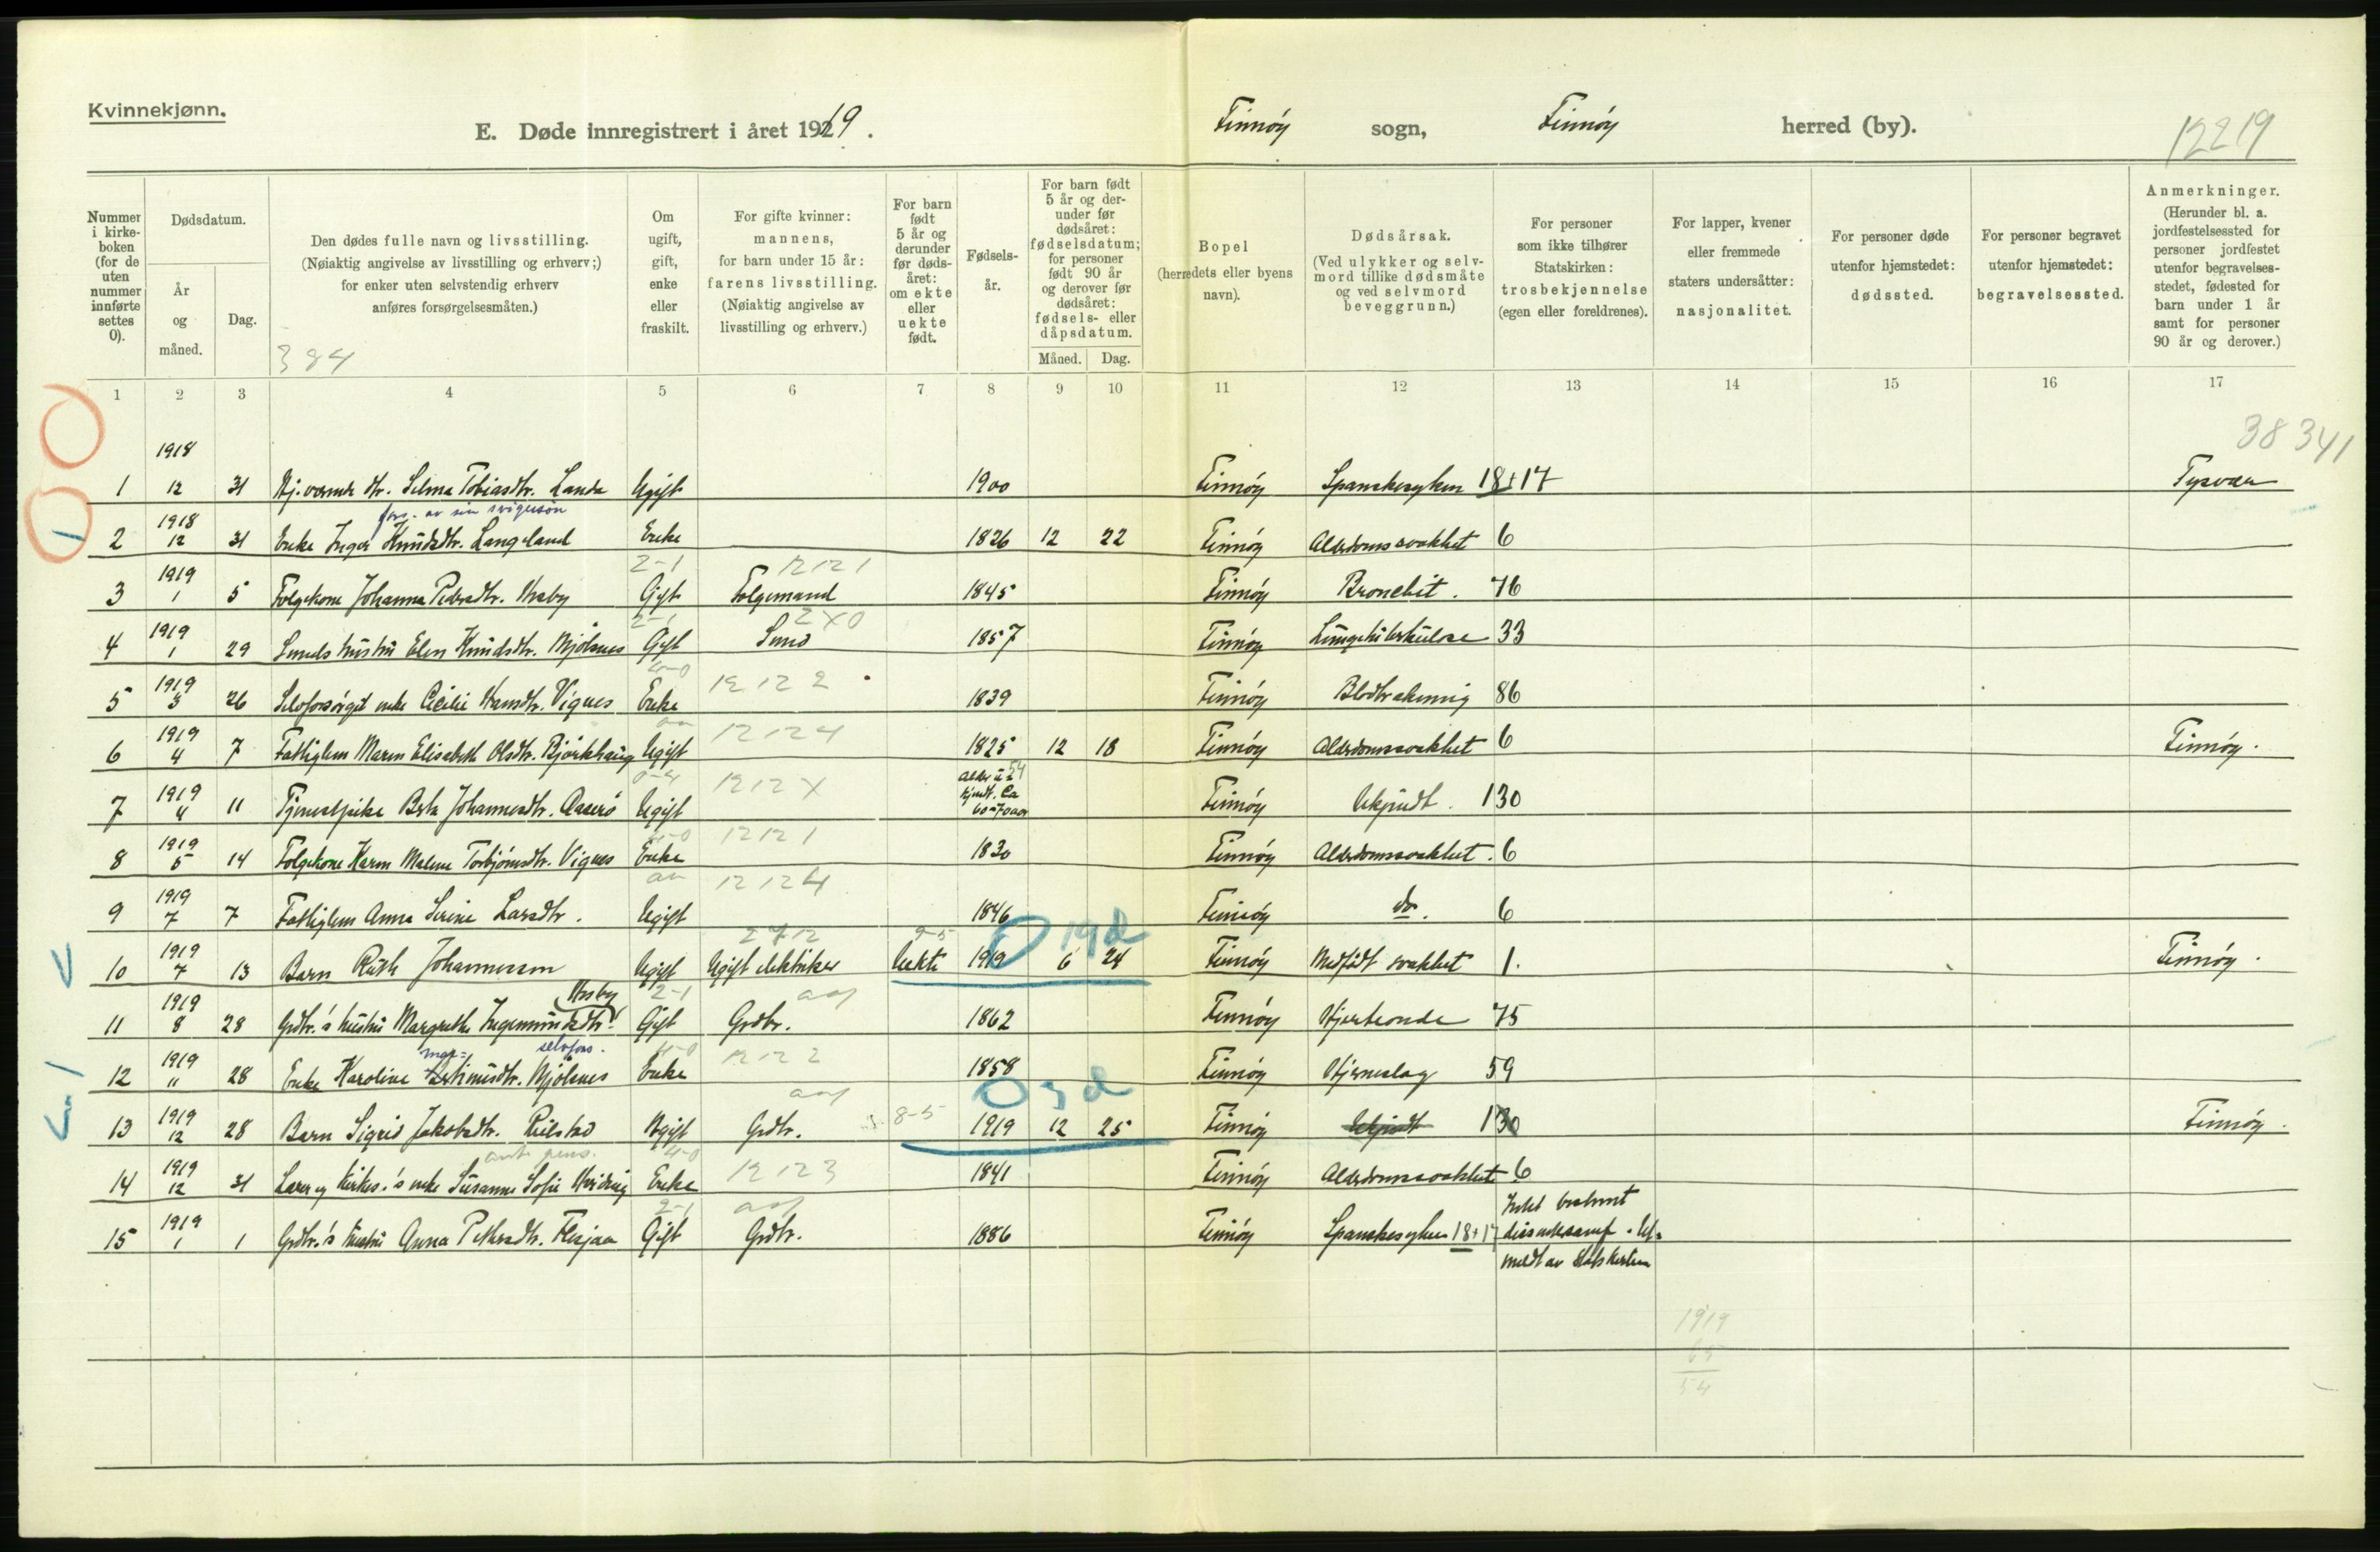 Kvinnekjønn.
E. Døde innregistrert i året 1919. Finnöy sogn, Finnöy herred (by). 12219
Nummer i kirkeboken (for de uten nummer innførte settes 0).
Dødsdatum.
År og måned.
Dag.
Den dødes fulle navn og livsstilling.
(Nøiaktig angivelse av livsstilling og erhverv;)
for enker uten selvstendig erhverv
anføres forsørgelsesmåten.)
384
Om ugift, gift, enke eller fraskilt.
For gifte kvinner: mannens, for barn under 15 år: farens livsstilling. (Nøiaktig angivelse av livsstilling og erhverv.)
For barn født 5 år og derunder før dødsåret: om ekte eller uekte født.
Fødselsår.
For barn født 5 år og derunder før dødsåret: fødselsdatum; for personer født 90 år og derover før dødsåret: fødsels- eller dåpsdatum.
Måned. Dag.
Bopel (herredets eller byens navn).
Dødsårsak. (Ved ulykker og selvmord tillike dødsmåte og ved selvmord beveggrunn.)
For personer som ikke tilhører Statskirken: trosbekjennelse (egen eller foreldrenes).
For lapper, kvener eller fremmede staters undersåtter: nasjonalitet.
For personer døde utenfor hjemstedet: dødssted.
For personer begravet utenfor hjemstedet: begravelsessted.
Anmerkninger. (Herunder bl. a. jordfestelsessted for personer jordfestet utenfor begravelsesstedet, fødested for barn under 1 år samt for personer 90 år og derover.)
1 2 3 4 5 6 7 8 9 10 11 12 13 14 15 16 17
38341
1918
1 12 31 Hj.værende dtr. Selma Tobiasdtr. Landa Ugift 1900 Finnöy Spanskesyken 18+17 Tysvær
fors. av sin svigersön
1918
2 12 31 Enke Inger Knudsdtr. Langeland Enke 1826 12 22 Finnöy Alderdomssvakhet 6
2-1 12121
1919
3 1 5 Folgekone Johanna Pedersdtr. Vasby Gift Folgemand 1845 Finnöy Bronchit. 76
2-1 2X0
1919
4 1 29 Smeds hustru Elen Knudsdtr. Mjölsnes Gift Smed 1857 Finnöy Lungetuberkulose 33
4-0 12122
1919
5 3 26 Selvforsörget enke Cecilie Hansdtr. Vignes Enke 1839 Finnöy Blodtrakning 86
12124
1919
6 4 7 Fattiglem Maren Elisabeth Olsdtr. Björkhaug Ugift 1825 12 18 Finnöy Alderdomssvakhet 6 Finnöy.
0-4 1212X Alder u- 54 kjendt. Ca 60-70 aar
1919
7 4 11 Tjenestpike Berta Johannesdtr. Aaserö Ugift Finnöy Ukjendt. 130
4-0 12121
1919
8 5 14 Folgekone Karen Malene Torbjörnsdtr. Vignes Enke 1830 Finnöy Alderdomssvakhet. 6
12124
1919
9 7 7 Fattiglem Anna Serine Larsdtr. Ugift 1846 Finnöy do. 6
2712 9-5 0 19d
1919
10 7 13 Barn Ruth Johannesson Ugift Ugift elektriker Uekte 1919 6 24 Finnöy Medfödt svakhet 1. Finnöy.
Vasby 2-1
1919
11 8 28 Grdbr.'s hustru Margrethe Ingemundsdtr. Gift Grdbr. 1862 Finnöy Hjerteonde 75
selvfors. 4-0 12122
1919
12 11 28 Enke Karoline Martinusdtr. Mjölsnes Enke 1858 Finnöy Hjerneslag 59
8-5 0 3d
1919
13 12 28 Barn Sigrid Jakobsdtr. Reilstad Ugift Grdbr. 1919 12 25 Finnöy Ukjendt 130 Finnöy.
pens. 4-0 12123
1919
14 12 31 Lærer og kirkes.'s enke Susanne Sofie Hviding Enke 1841 Finnöy Alderdomssvakhet 6
2-1
1919
15 1 1 Grdbr.'s hustru Anna Pethersdtr. Flesjaa Gift Grdbr. 1886 Finnöy Spanskesyken 18+17 Intet bestemt dissentersamf. Utmeldt av statskirken
1919
65
54